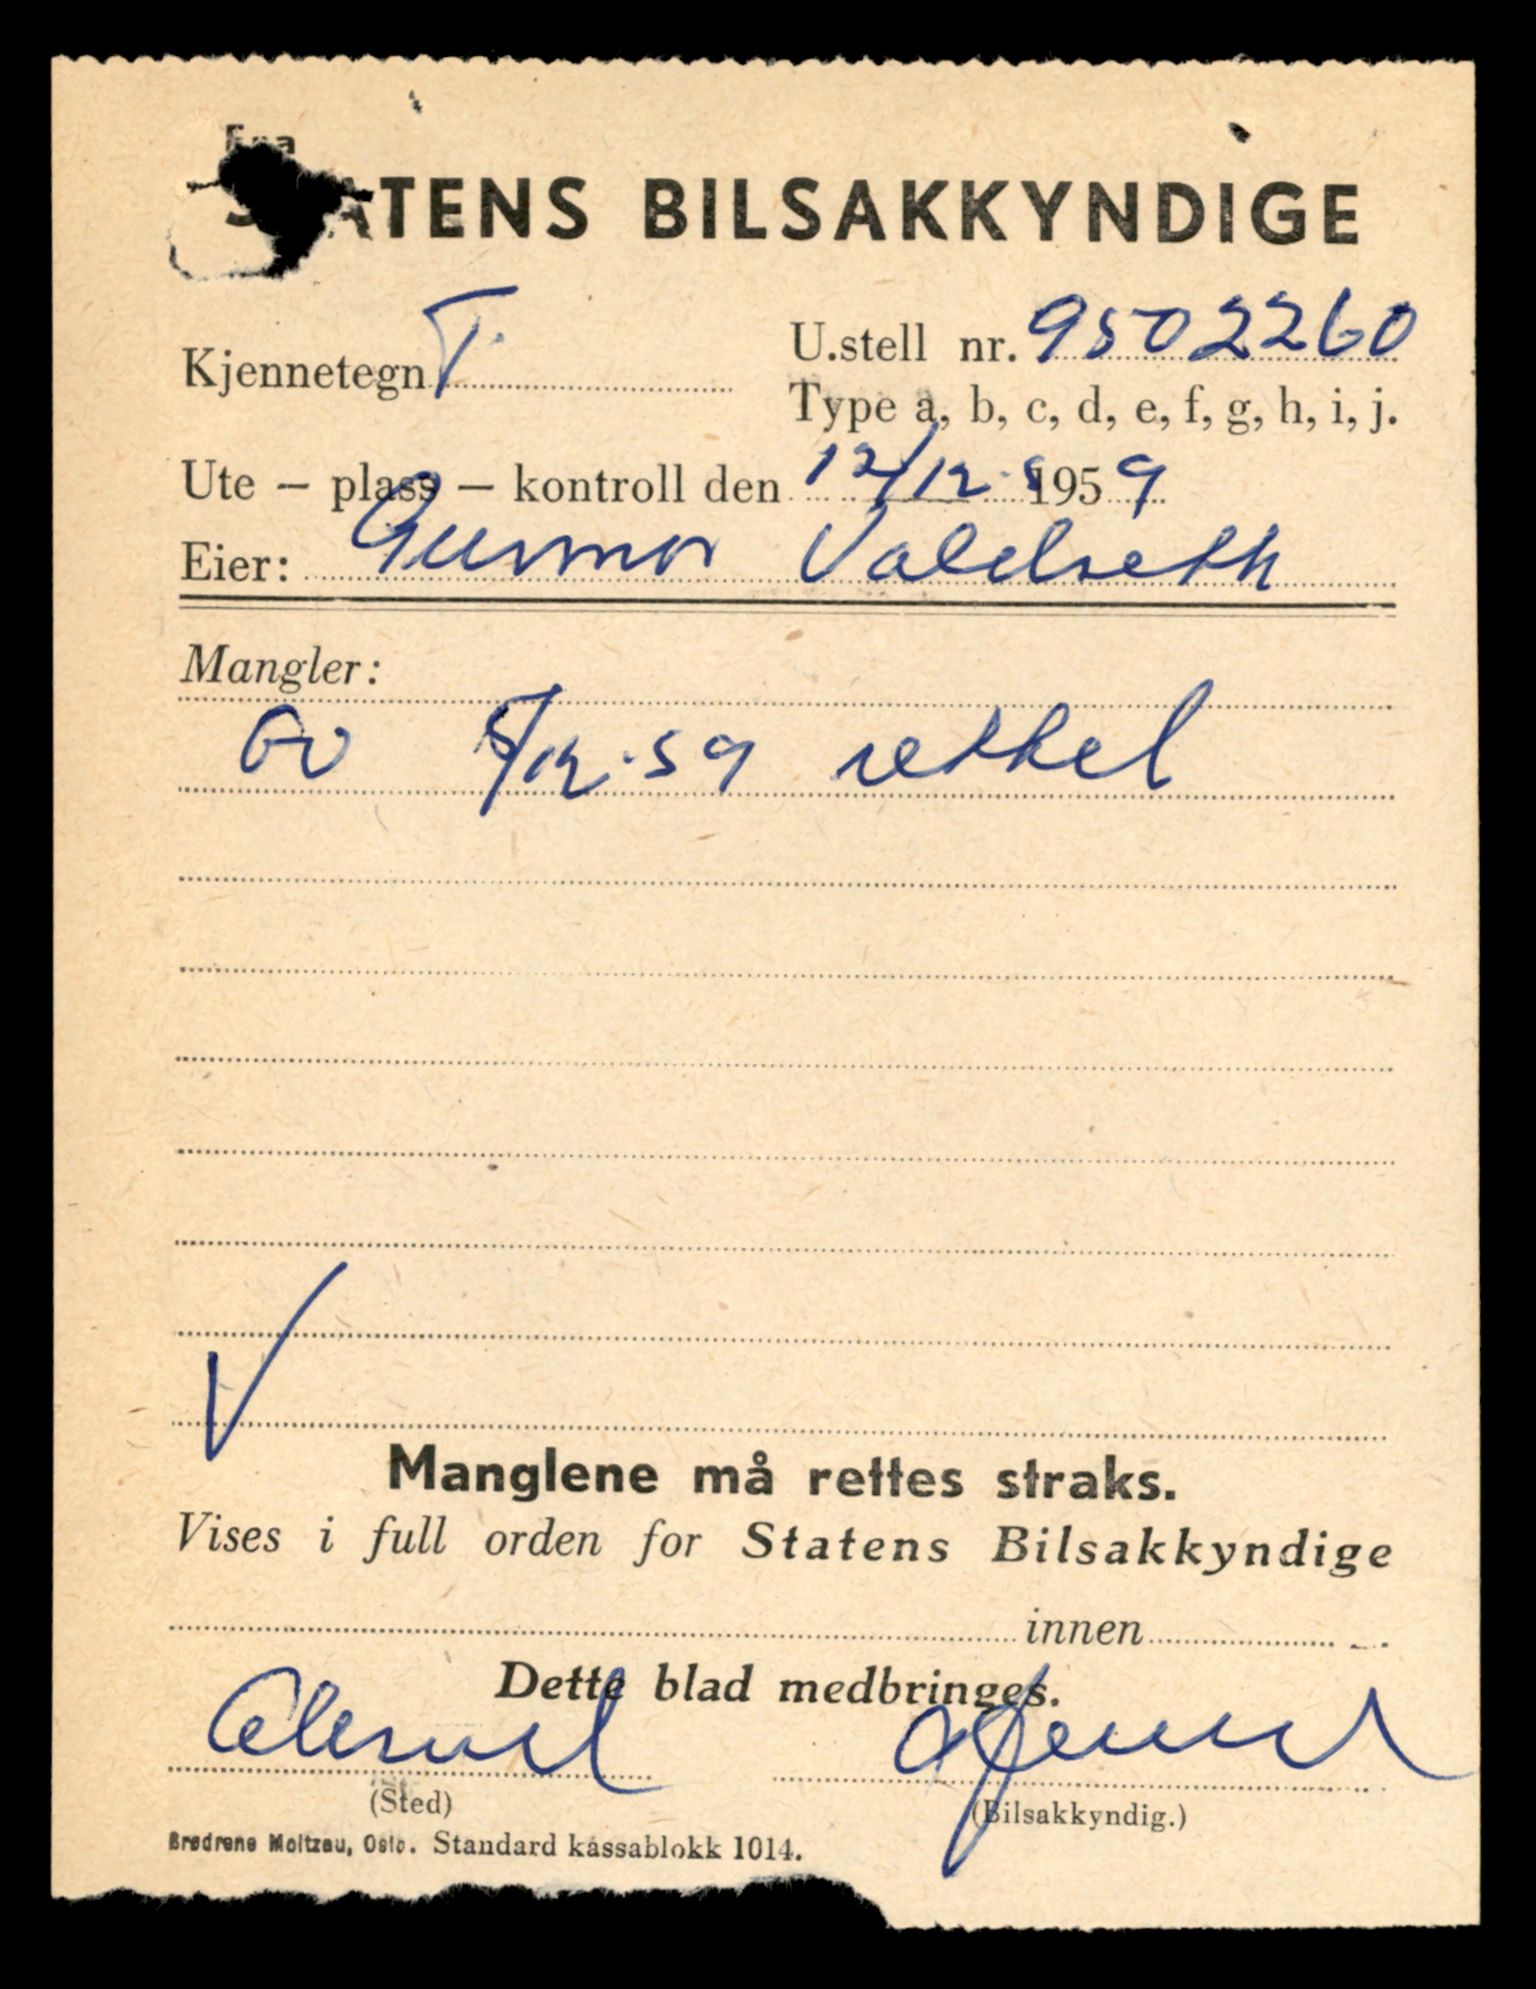 Fra
STATENS BILSAKKYNDIGE
Kjennetegn T.
U.stell nr. 9502260
Type a, b, c, d, e, f, g, h, i, j.
Ute – plass – kontroll den 12/12 1959
Eier: Gunnor Valdseth
Mangler:
5/12.59
Manglene må rettes straks.
Vises i full orden for Statens Bilsakkyndige
innen
Dette blad medbringes.
(Sted)
(Bilsakkyndig.)
Brødrene Moltzau, Oslo. Standard kassablokk 1014.